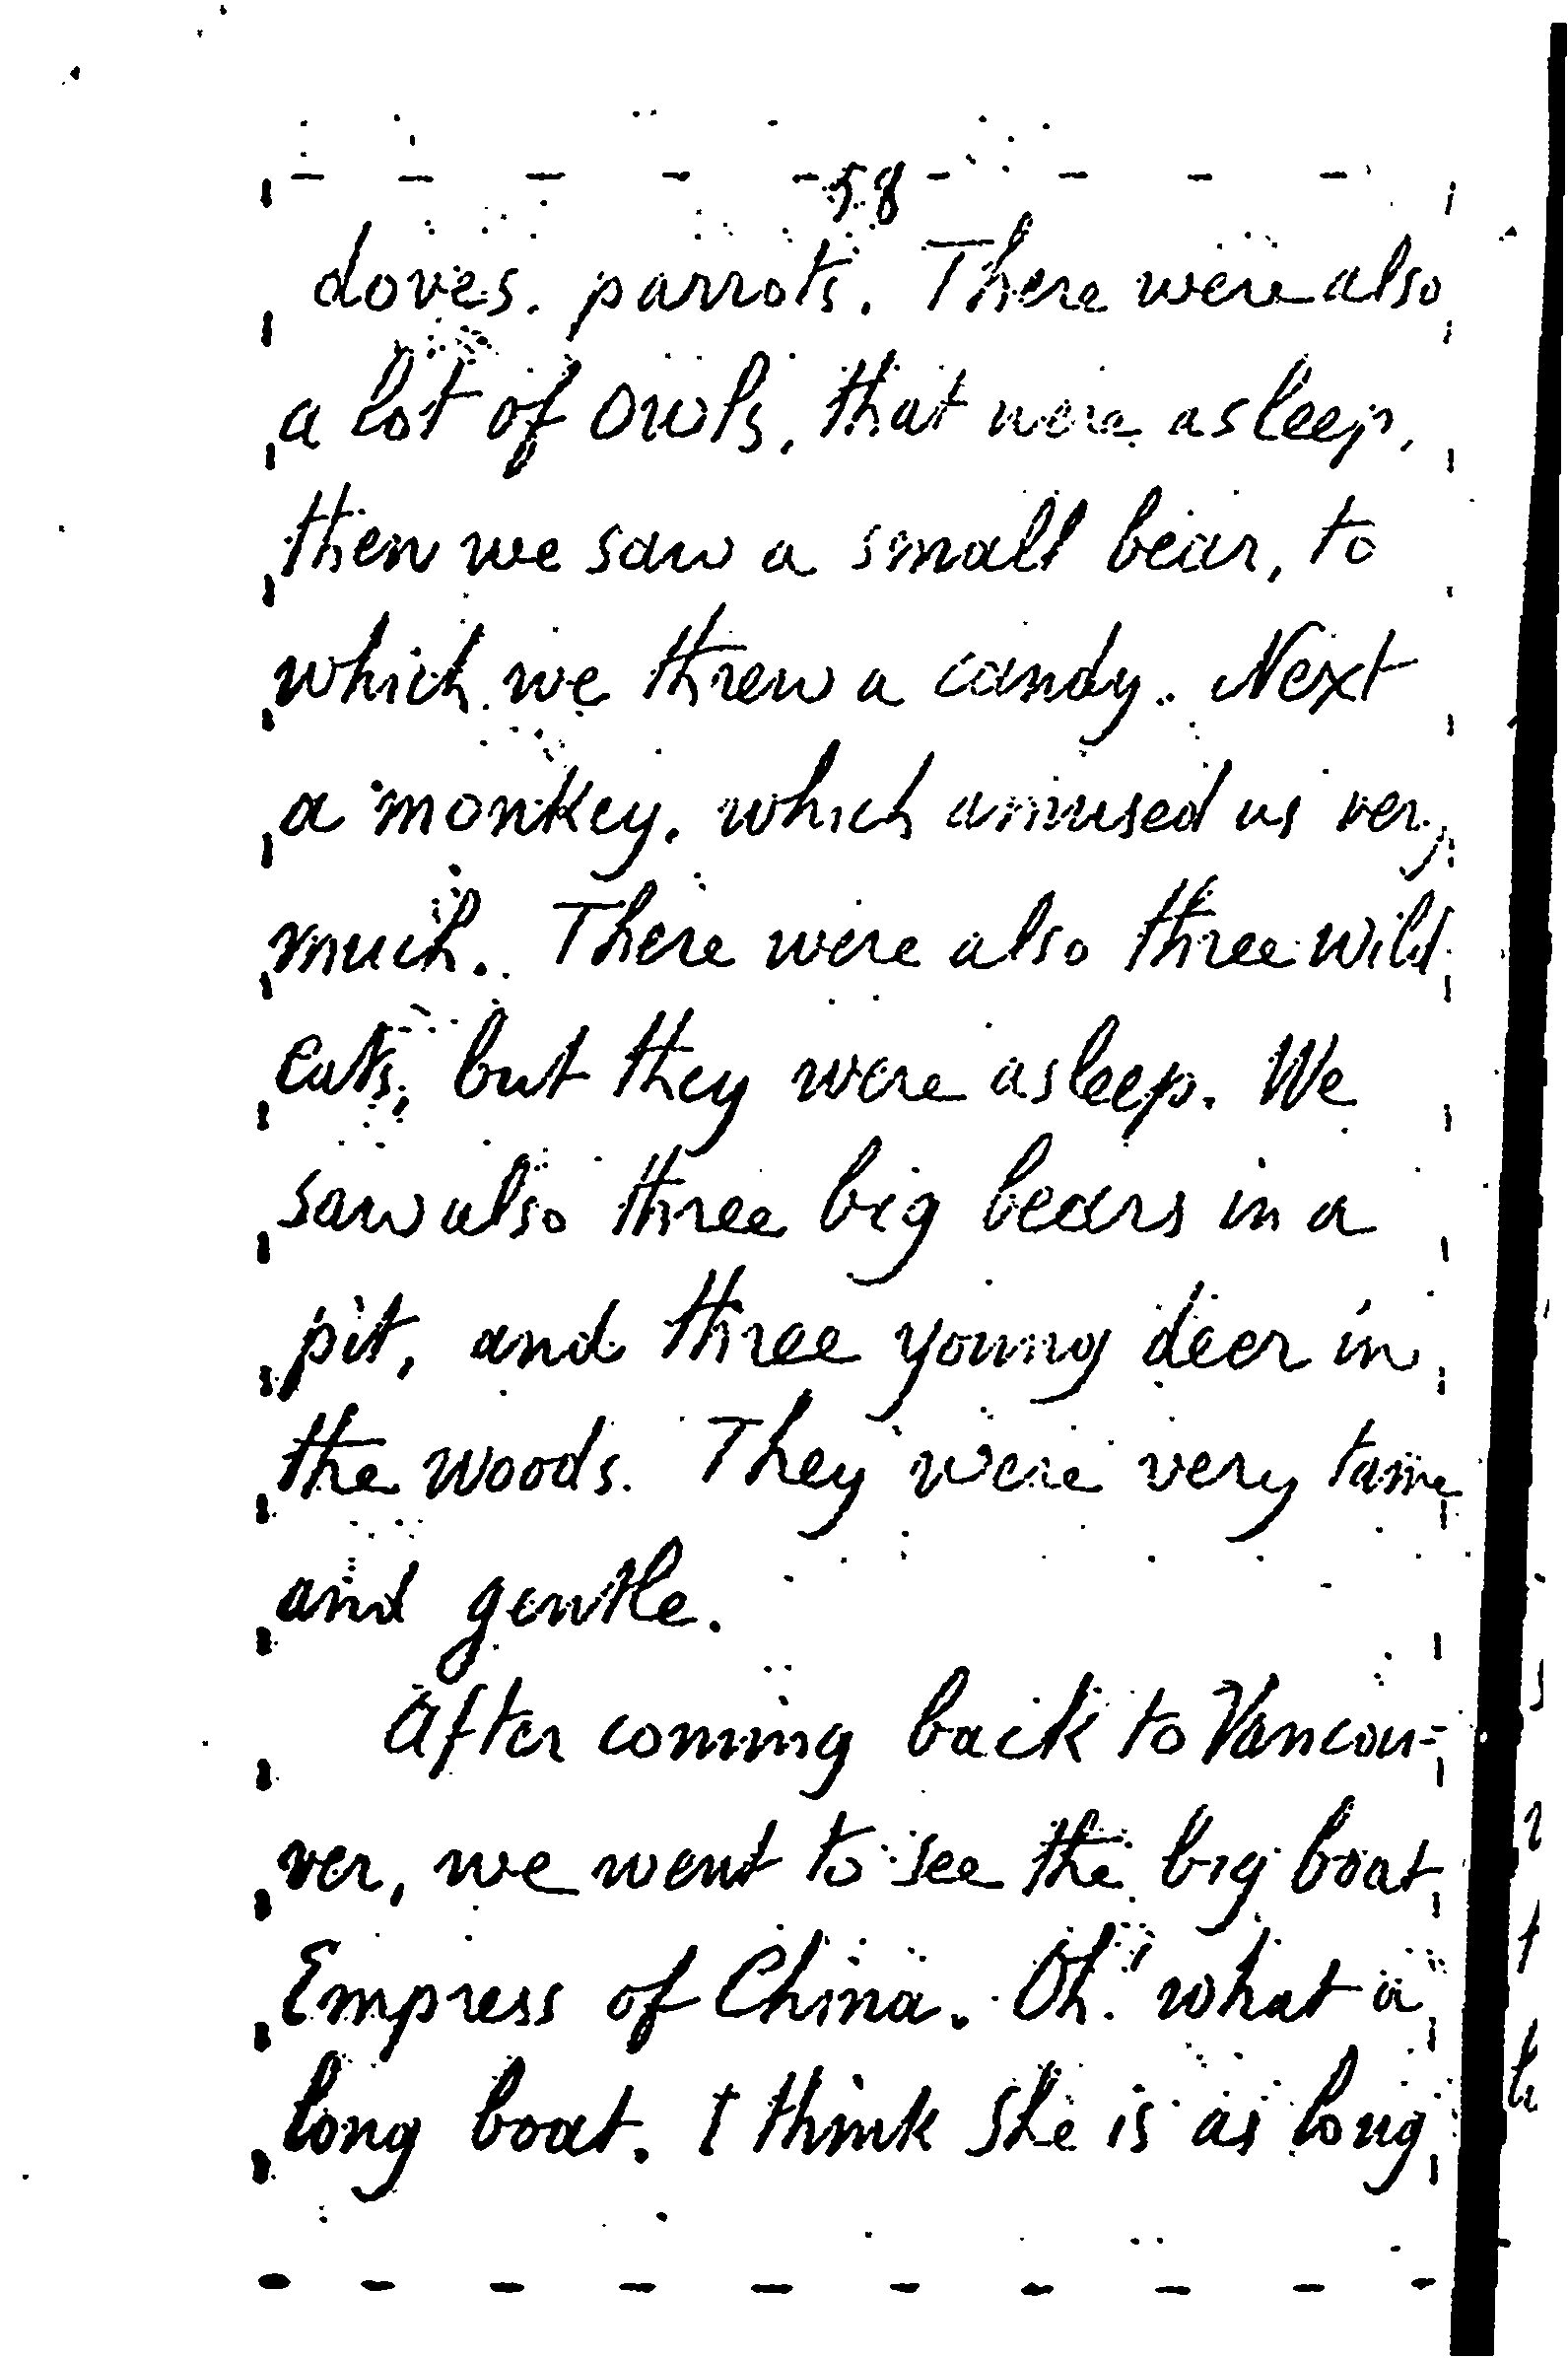 58
doves, parrots. There were also
a lot of owls, that were asleep,
then we saw a small bear, to
which we threw a candy. Next
a monkey, which amused us very
much. There were also three wild
cats, but they were asleep. We
saw also three big bears in a
pit, and three young deer in
the woods. They were very tame
and gentle.
After coming back to Vancou-
ver, we went to see the big boat
Empress of China. Oh! what a
long boat. I think she is as long